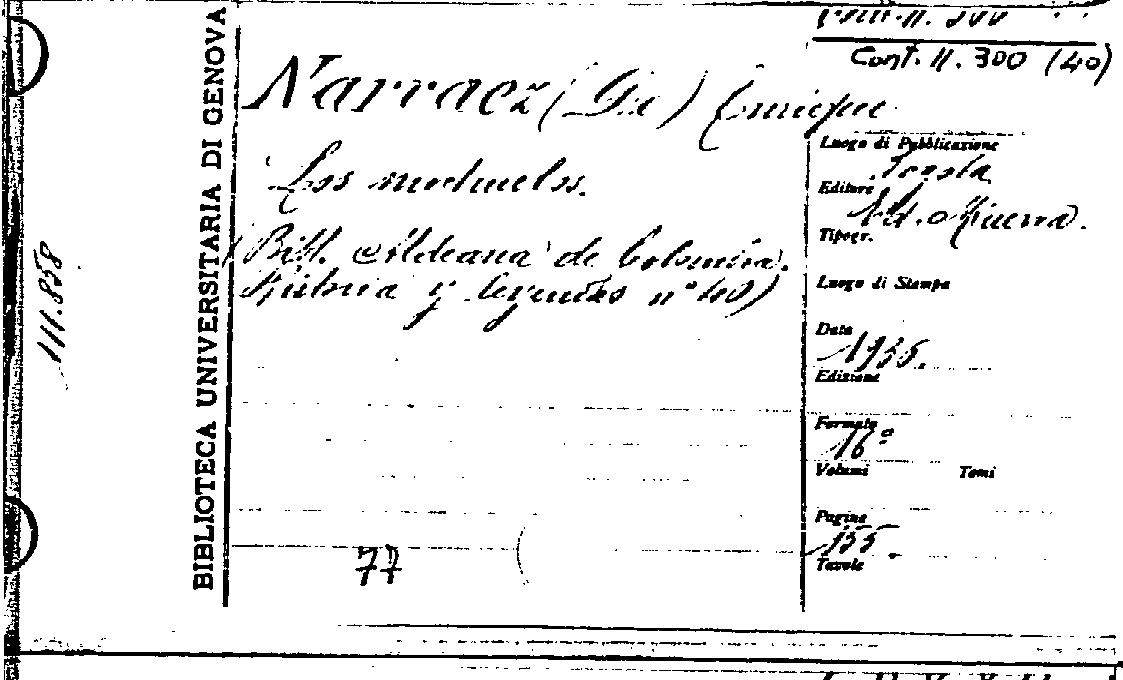 Cont. II. 300 (40)
BIBLIOTECA UNIVERSITARIA DI GENOVA
111.858
Narraez (De) Enrique
Los mochuelos.
(Bibl. Aldeana de Colombia.
Historia y leyendas n° 40)
77
Luogo di Pubblicazione
Bogota
Editore
Ed. Minerva.
Tipogr.
Luogo di Stampa
Data
1935.
Edizione
Formato
16°
Volumi Tomi
Pagine
155.
Tavole